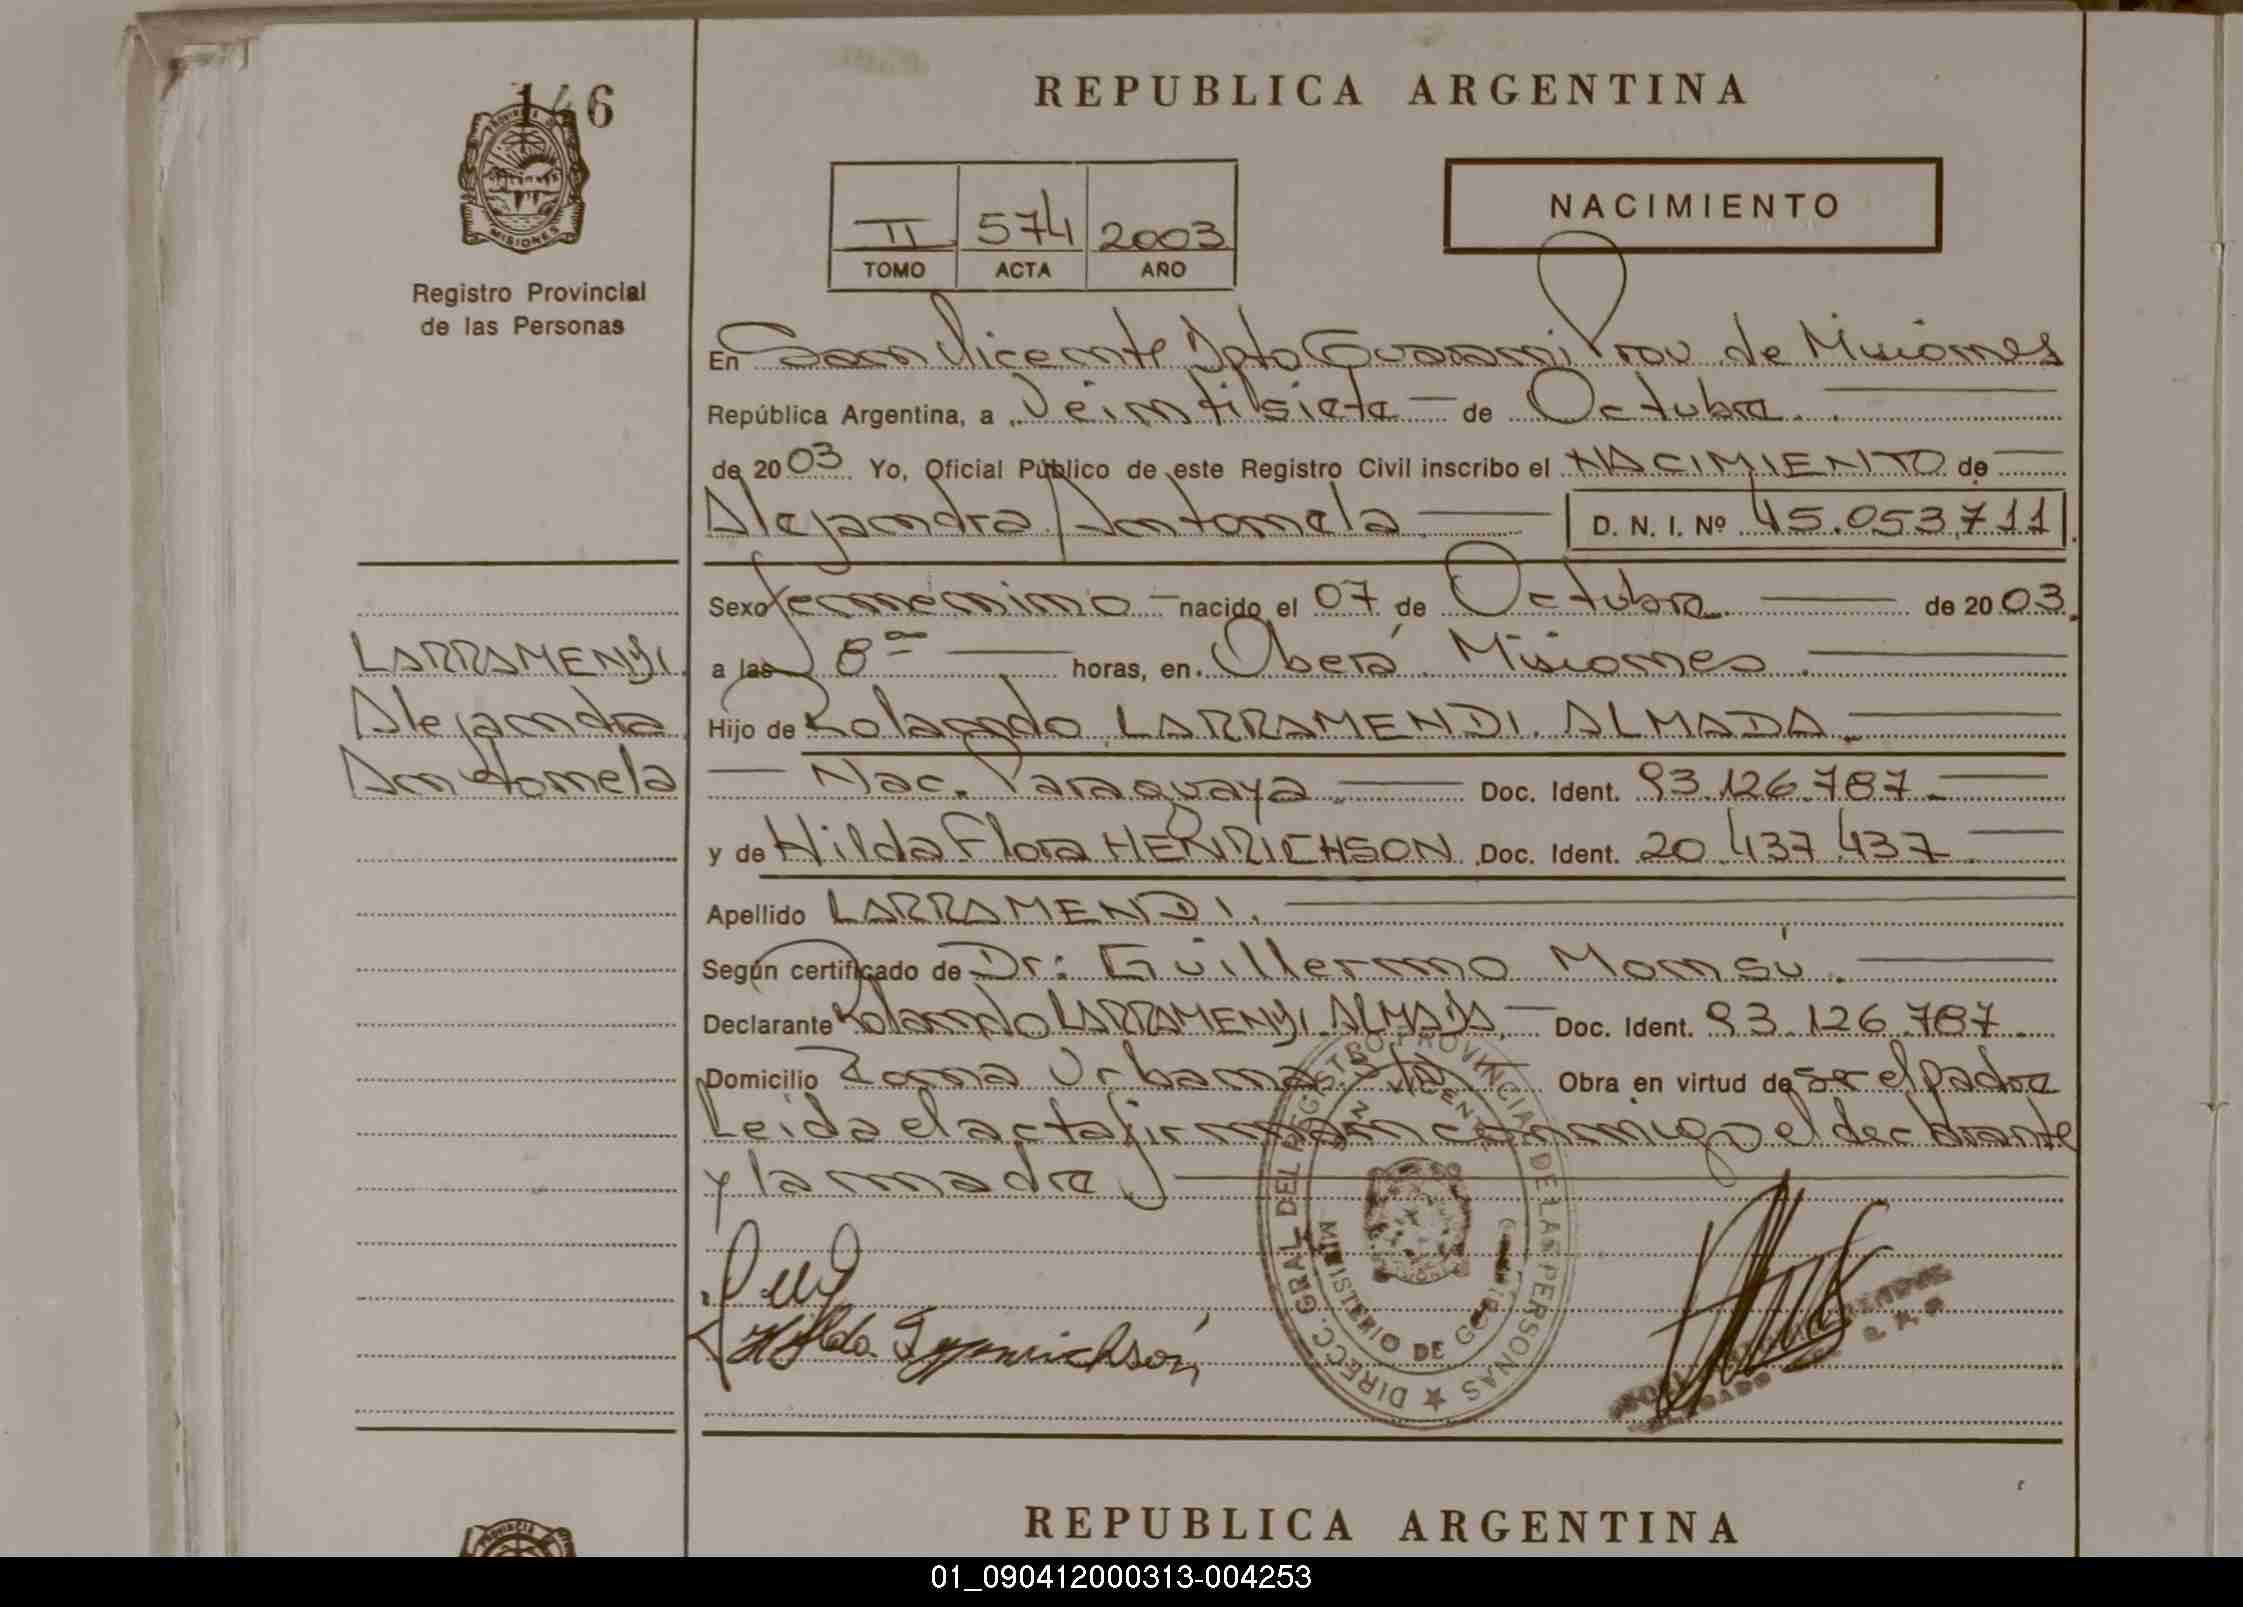 146
PROVINCIA
MISIONES
Registro Provincial
de las Personas
REPUBLICA ARGENTINA
NACIMIENTO
II 574 2003
TOMO ACTA AÑO
En San Vicente Dpto Guarani Prov de Misiones
República Argentina, a Veintisiete de Octubre.
de 2003 Yo, Oficial Público de este Registro Civil inscribo el NACIMIENTO de
Alejandra Antonela D. N. I. Nº 45.053.711
Sexo femenino nacido el 07 de Octubre de 2003.
a las 8 horas, en Oberá Misiones.
Hijo de Rolando LARRAMENDI. ALMADA.
Nac. Paraguaya. Doc. Ident. 93.126.787
y de Hilda Flora HENRICHSON Doc. Ident. 20.437.437
Apellido LARRAMENDI.
Según certificado de Dr: Guillermo Monsú.
Declarante Rolando LARRAMENDI ALMADA, Doc. Ident. 93.126.787
Domicilio Zona Urbana Obra en virtud de ser el padre
Leida el acta firman conmigo el declarante
y la madre
LARRAMENDI.
Alejandra
Antonela
DIRECC. GRAL. DEL REGISTRO PROVINCIAL DE LAS PERSONAS
MINISTERIO DE GOBIERNO
VICENTE
Hilda
REPUBLICA ARGENTINA
PROVINCIA
01_090412000313-004253